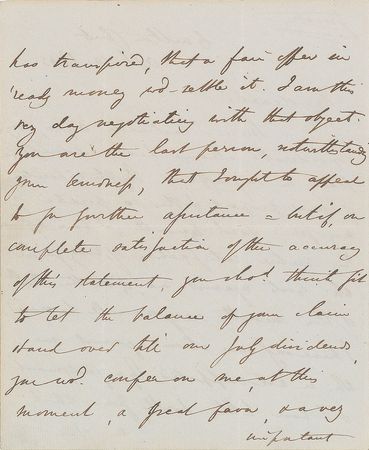 has transpired, that a fair offer in
ready money wd. settle it. I am this
very day negotiating with that object.
You are the last person, notwithstanding
your kindness, that I ought to appeal
to for further assistance = but if, on
complete satisfaction of the accuracy
of this statement, you shod. think fit
to let the balance of your claim
stand over till our July dividends,
you wd. confer on me, at this
moment, a great favor, & a very
important